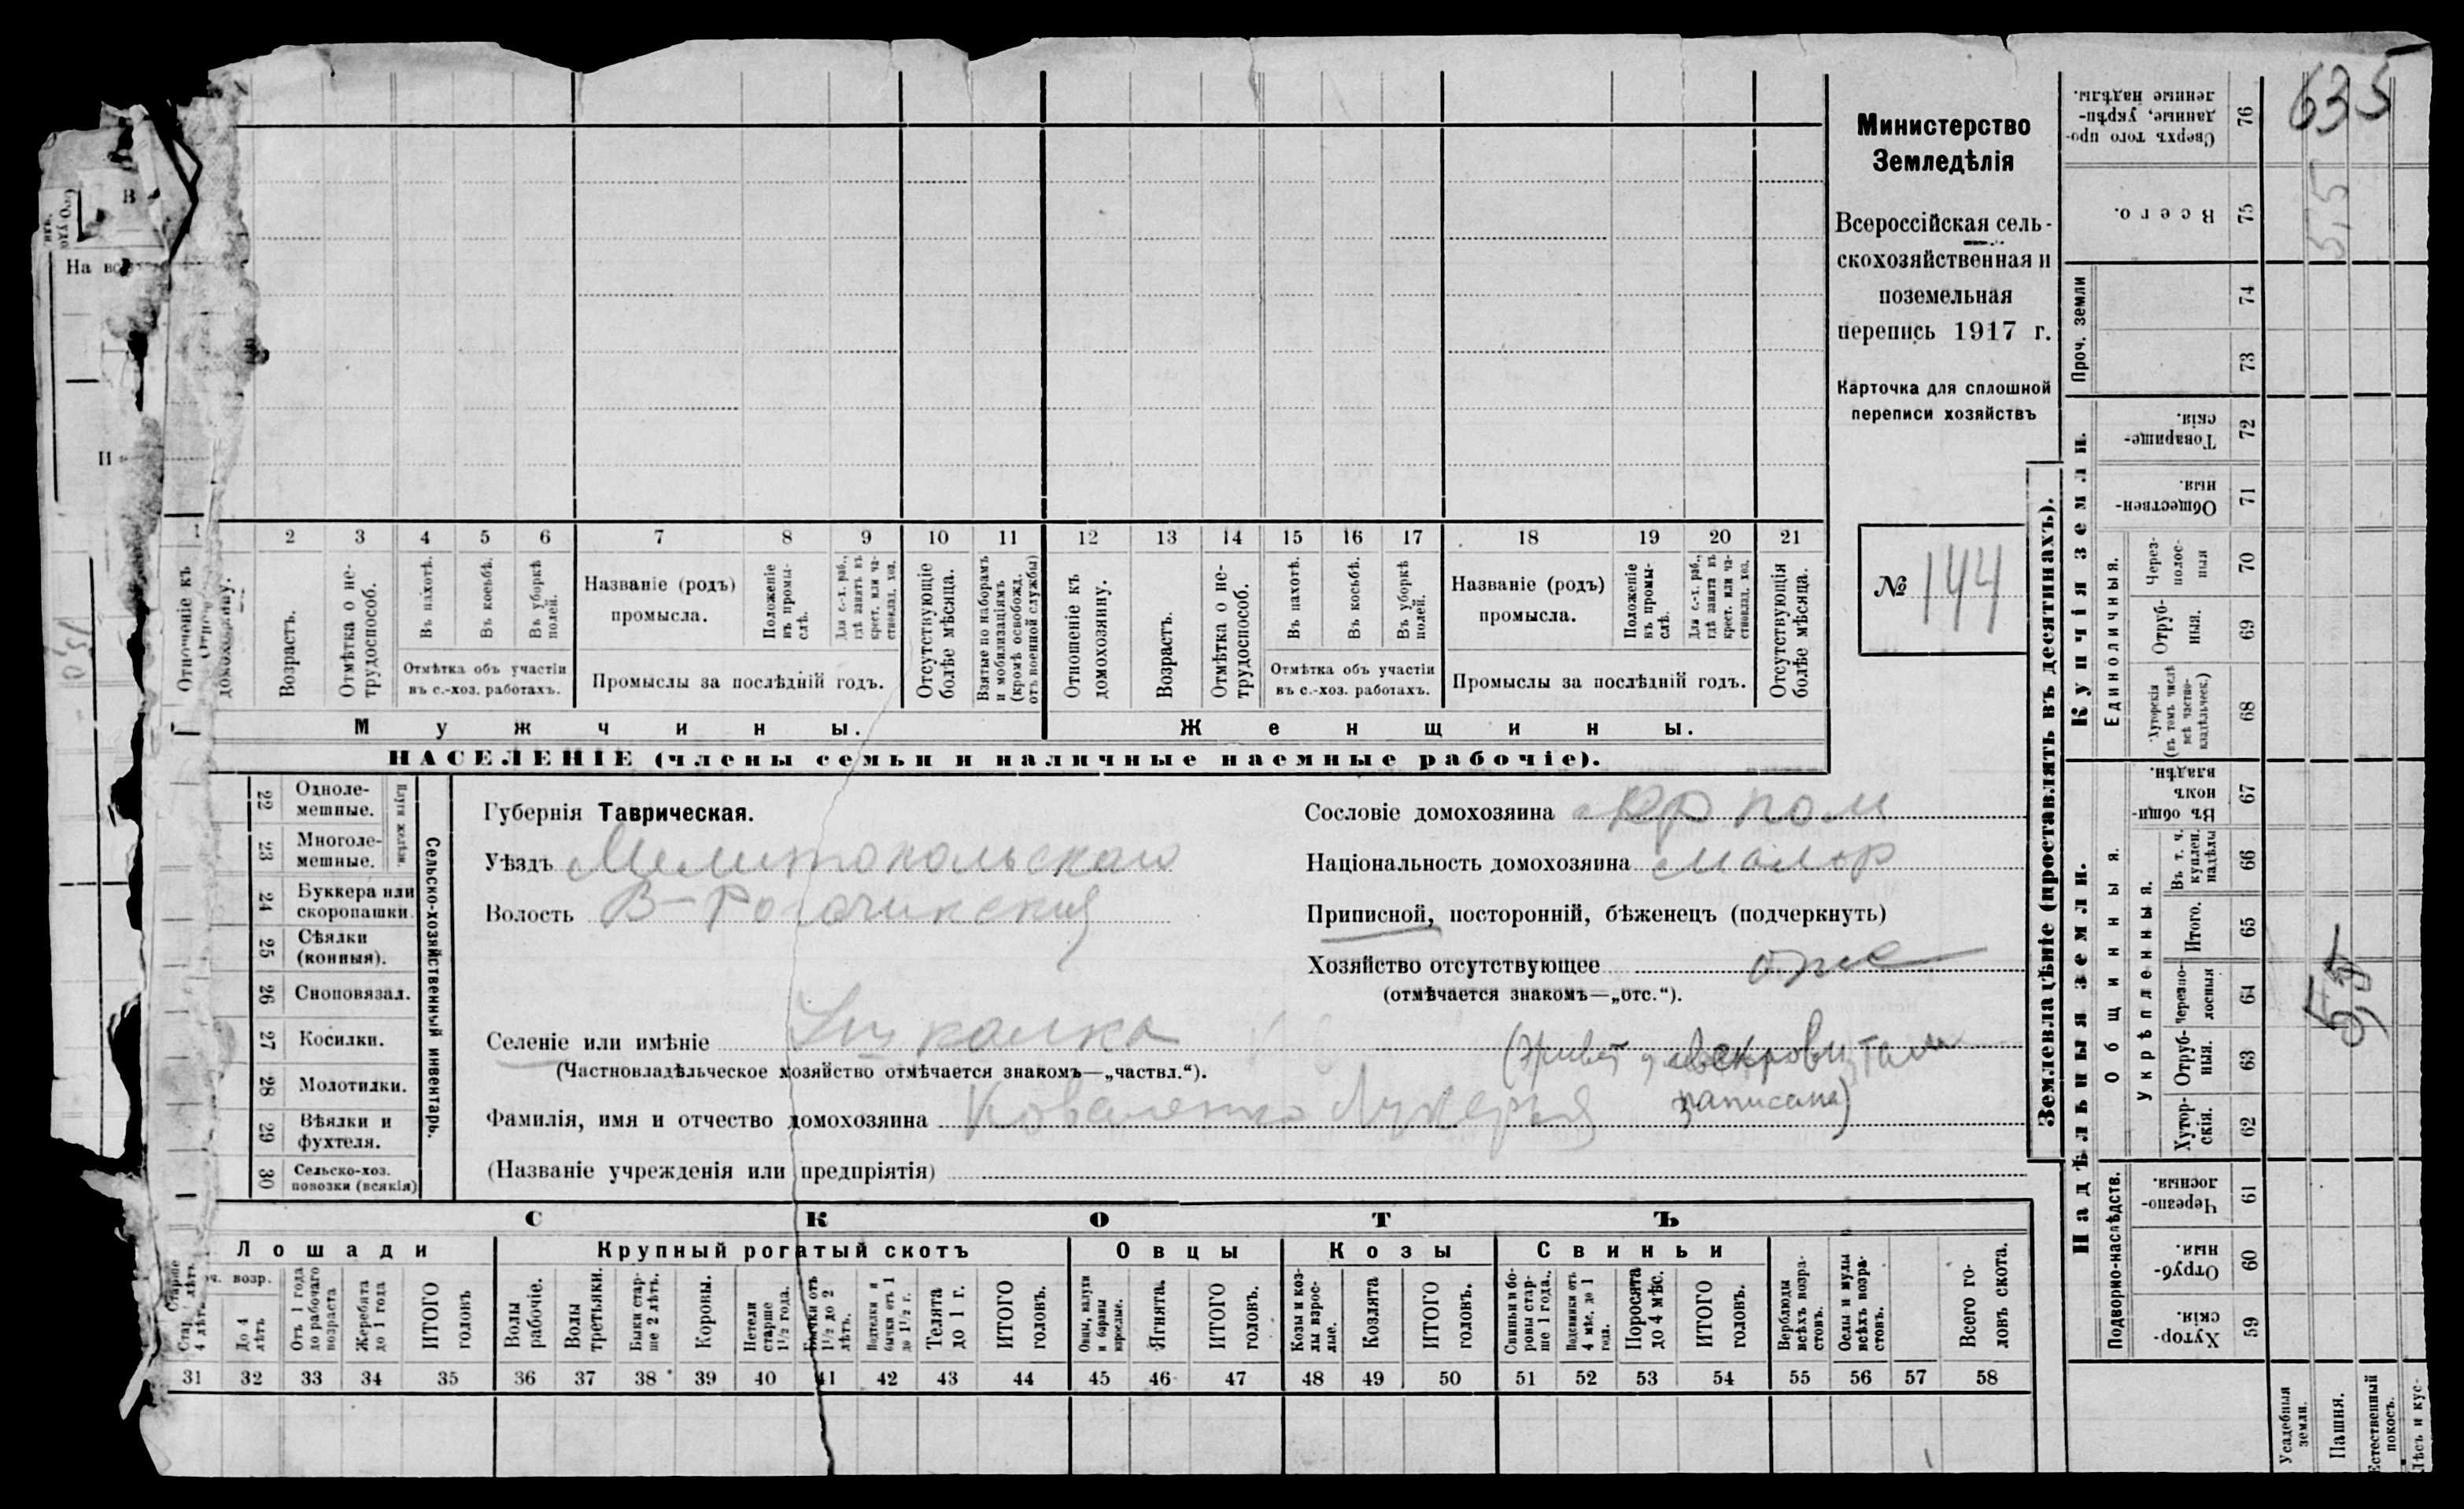 635
Министерство
Земледѣлія
Всероссійская сель-
скохозяйственная и
поземельная
перепись 1917 г.
Карточка для сплошной
переписи хозяйствъ
№ 144
2 3 4 5 6 7 8 9 10 11 12 13 14 15 16 17 18 19 20 21
Отношеніе къ
домохозяину.
Возрастъ.
Отмѣтка о не-
трудоспособ.
Въ пахотѣ.
Въ косьбѣ.
Въ уборкѣ
полей.
Отмѣтка объ участіи
въ с.-хоз. работахъ.
Названіе (родъ)
промысла.
Положеніе
въ промы-
слѣ.
Для с.-х. раб.,
гдѣ занятъ въ
крест. или ча-
стновлад. хоз.
Промыслы за послѣдній годъ.
Отсутствующіе
болѣе мѣсяца.
Взятые по наборамъ
и мобилизаціямъ
(кромѣ освобожд.
отъ военной службы)
Отношеніе къ
домохозяину.
Возрастъ.
Отмѣтка о не-
трудоспособ.
Въ пахотѣ.
Въ косьбѣ.
Въ уборкѣ
полей.
Отмѣтка объ участіи
въ с.-хоз. работахъ.
Названіе (родъ)
промысла.
Положеніе
въ промы-
слѣ.
Для с.-х. раб.,
гдѣ занята въ
крест. или ча-
стновлад. хоз.
Промыслы за послѣдній годъ.
Отсутствующія
болѣе мѣсяца.
Мужчины.
Женщины.
НАСЕЛЕНІЕ (члены семьи и наличные наемные рабочіе).
22 Одноле-
мешные.
23 Многоле-
мешные.
Плуги желѣзн.
24 Буккера или
скоропашки.
25 Сѣялки
(конныя).
26 Сноповязал.
27 Косилки.
28 Молотилки.
29 Вѣялки и
фухтеля.
30 Сельско-хоз.
повозки (всякія)
Сельско-хозяйственный инвентарь.
Губернія Таврическая.
Уѣздъ Мелитопольскаго
Волость В-Рогачинская
Селеніе или имѣніе Ушкалка
(Частновладѣльческое хозяйство отмѣчается знакомъ—„частвл.“).
Фамилія, имя и отчество домохозяина Коваленко Лукерья
(Названіе учрежденія или предпріятія)
Сословіе домохозяина кр пом
Національность домохозяина малор
Приписной, посторонній, бѣженецъ (подчеркнуть)
Хозяйство отсутствующее отс
(отмѣчается знакомъ—„отс.“).
(живет у свекрови, там
записана)
СКОТЪ
Лошади
Крупный рогатый скотъ
Овцы
Козы
Свиньи
Старше
4 лѣтъ
До 4
лѣтъ
Отъ 1 года
до рабочаго
возраста
Жеребята
до 1 года
ИТОГО
головъ
Волы
рабочіе.
Волы
третьяки.
Быки стар-
ше 2 лѣтъ.
Коровы.
Нетели
старше
1½ года.
Бычки отъ
1½ до 2
лѣтъ.
Подтелки и
бычки отъ 1
до 1½ г.
Телята
до 1 г.
ИТОГО
головъ.
Овцы, валухи
и бараны
взрослые.
Ягнята.
ИТОГО
головъ.
Козы и коз-
лы взрос-
лые.
Козлята
ИТОГО
головъ.
Свиньи и бо-
ровы стар-
ше 1 года.
Подсвинки отъ
4 мѣс. до 1
года.
Поросята
до 4 мѣс.
ИТОГО
головъ.
Верблюды
всѣхъ возра-
стовъ.
Ослы и мулы
всѣхъ возра-
стовъ.
Всего го-
ловъ скота.
31 32 33 34 35 36 37 38 39 40 41 42 43 44 45 46 47 48 49 50 51 52 53 54 55 56 57 58
Землевладѣніе (проставлять въ десятинахъ).
Купчія земли.
Надѣльныя земли.
Сверхъ того про-
данные, укрѣп-
ленные надѣлы. 76
Всего. 75 5,5
Проч. земли 74 73
Товарище-
скія. 72
Обществен-
ныя. 71
Единоличныя.
Через-
полос-
ныя 70
Отруб-
ныя. 69
Хуторскія
(въ томъ числѣ
всѣ частно-
владѣльческ.) 68
Общинныя.
Въ общи-
номъ
владѣн. 67
Укрѣпленныя.
Въ т. ч.
куплен.
надѣлы 66
Итого. 65
Черезпо-
лосныя 64 5,5
Отруб-
ныя. 63
Хутор-
скія. 62
Подворно-наслѣдств.
Черезпо-
лосныя. 61
Отруб-
ныя. 60
Хутор-
скія. 59
Усадебныя
земли.
Пашня.
Естественный
покосъ.
Лѣсъ и кус-